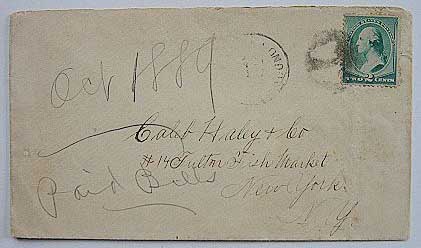 Oct 1889
TWO 2 CENTS
Caleb Haley & Co
# 14 Fulton Fish Market
New York
N.Y.
Paid Bills